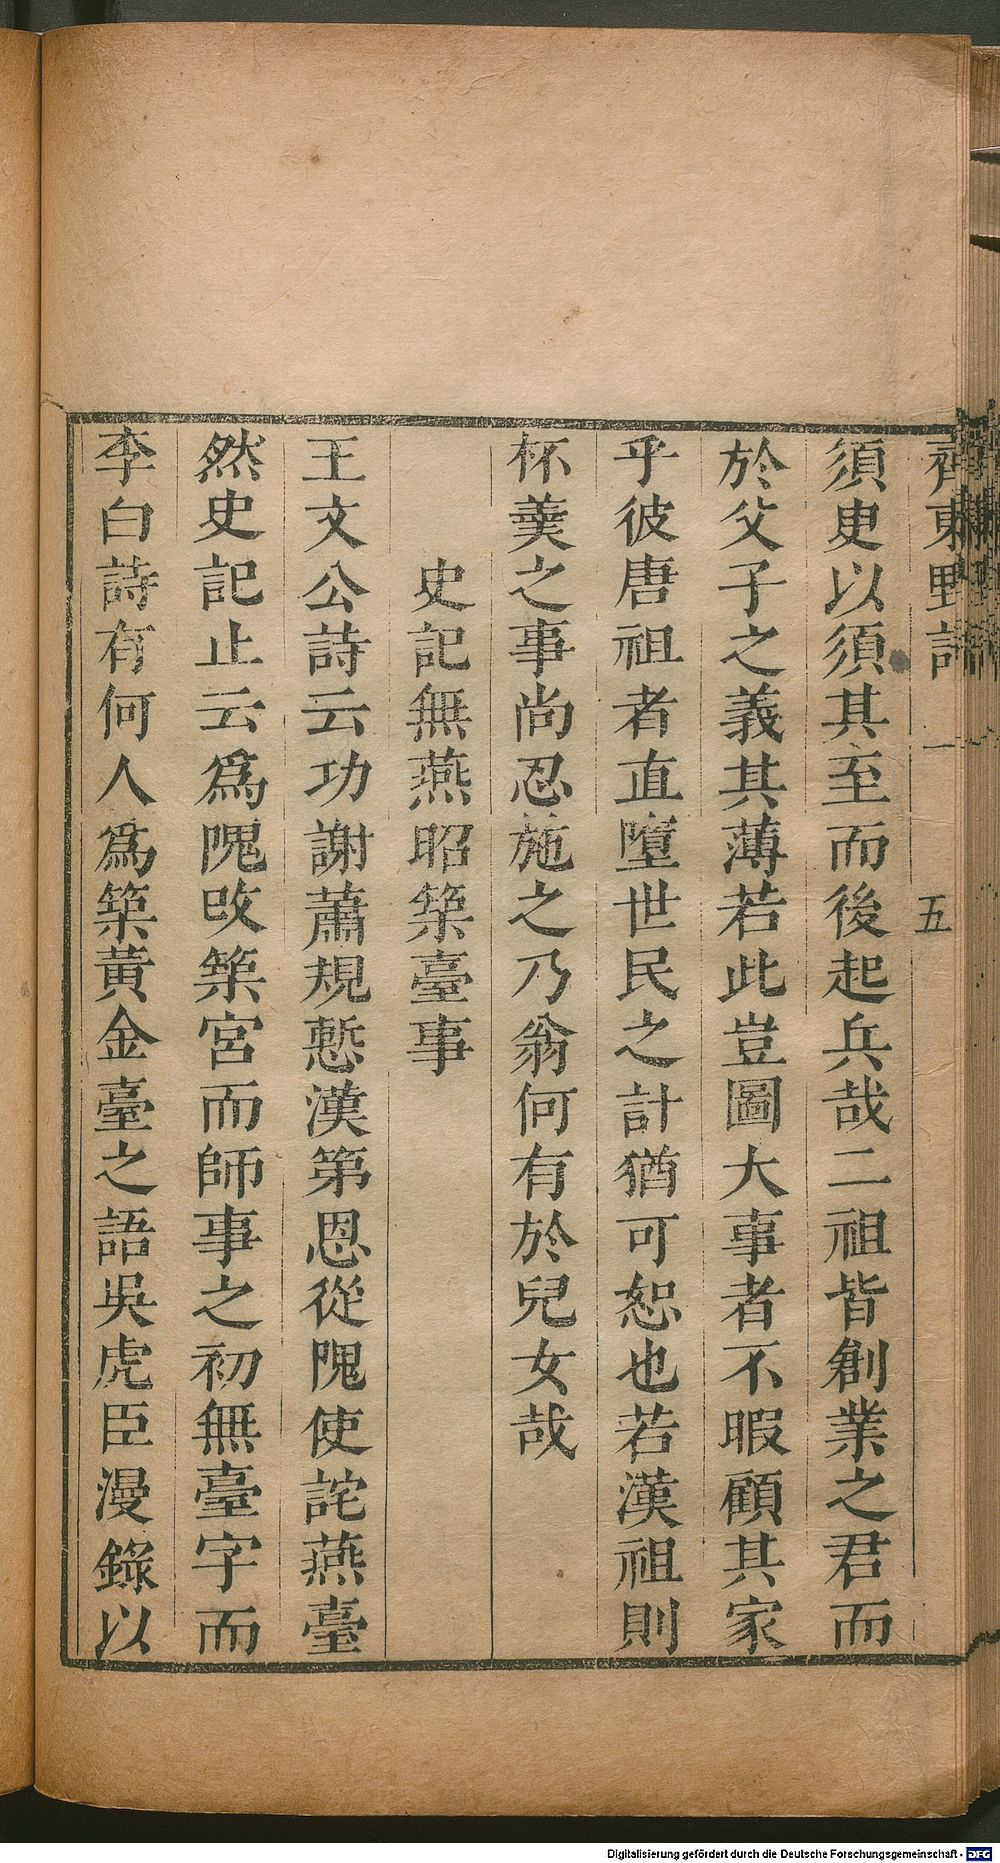 齊東野語 一 五
須臾以須其至而後起兵哉二祖皆創業之君而
於父子之義其薄若此豈圖大事者不暇顧其家
乎彼唐祖者直墮世民之計猶可恕也若漢祖則
杯羹之事尚忍施之乃翁何有於兒女哉
史記無燕昭築臺事
王文公詩云功謝蕭規慙漢第恩從隗使詫燕臺
然史記止云爲隗改築宮而師事之初無臺字而
李白詩有何人爲築黃金臺之語吳虎臣漫錄以
Digitalisierung gefördert durch die Deutsche Forschungsgemeinschaft - DFG